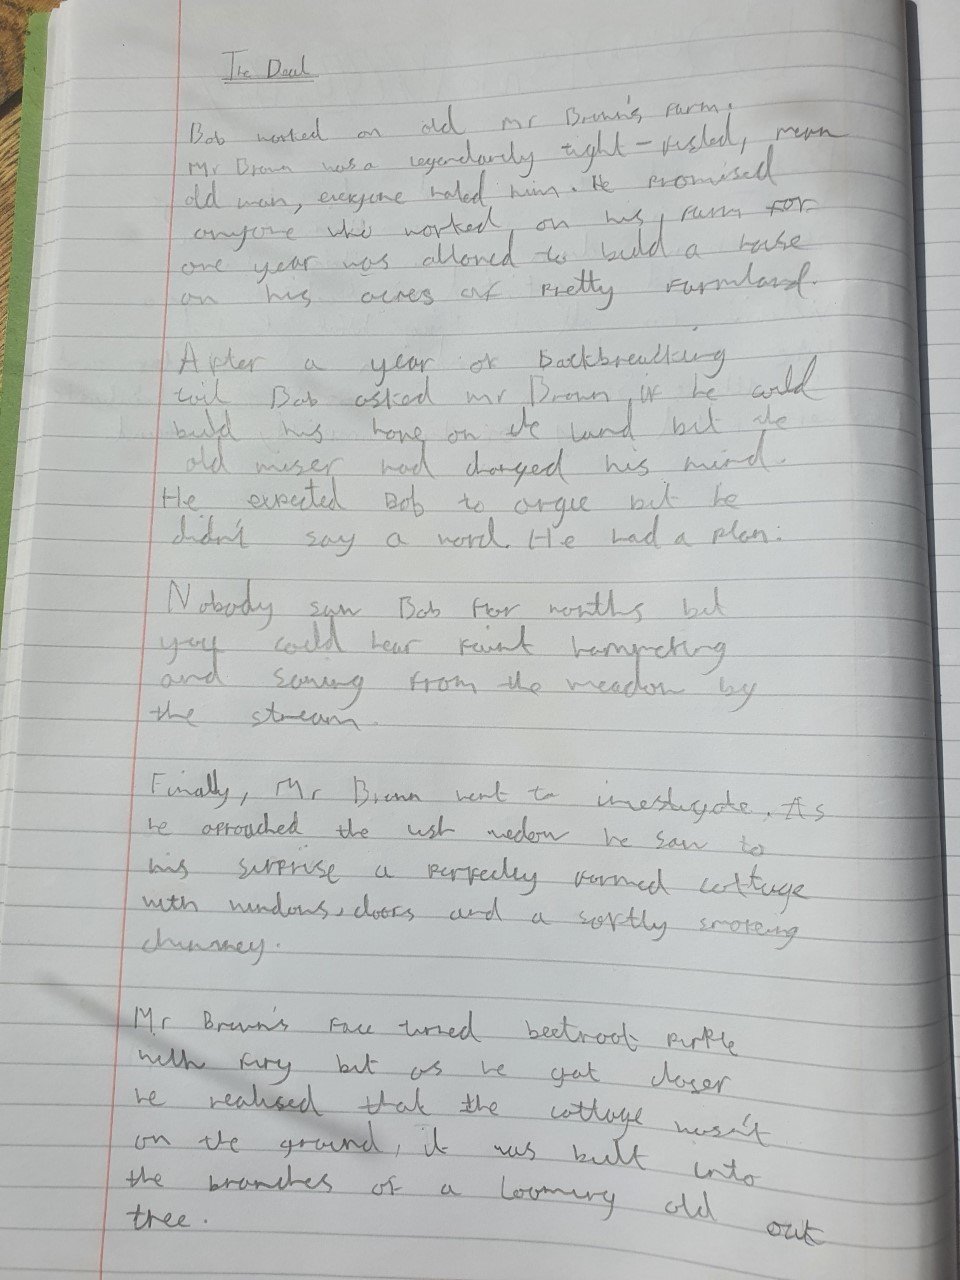 The Deal
Bob worked on old Mr Brown's farm.
Mr Brown was a legendarily tight-fisted, mean
old man, everyone hated him. He promised
anyone who worked on his farm for
one year was allowed to build a house
on his acres of pretty farmland.
After a year of backbreaking
toil Bob asked Mr Brown if he could
build his home on the land but the
old miser had changed his mind.
He expected Bob to argue but he
didn't say a word. He had a plan.
Nobody saw Bob for months but
you could hear faint hammering
and sawing from the meadow by
the stream.
Finally, Mr Brown went to investigate. As
he aproached the medow he saw to
his surprise a perfectly formed cottage
with windows, doors and a softly smokeing
chimney.
Mr Brown's face turned beetroot purple
with fury but as he got closer
he realised that the cottage wasn't
on the ground, it was built into
the branches of a looming old oak
tree.